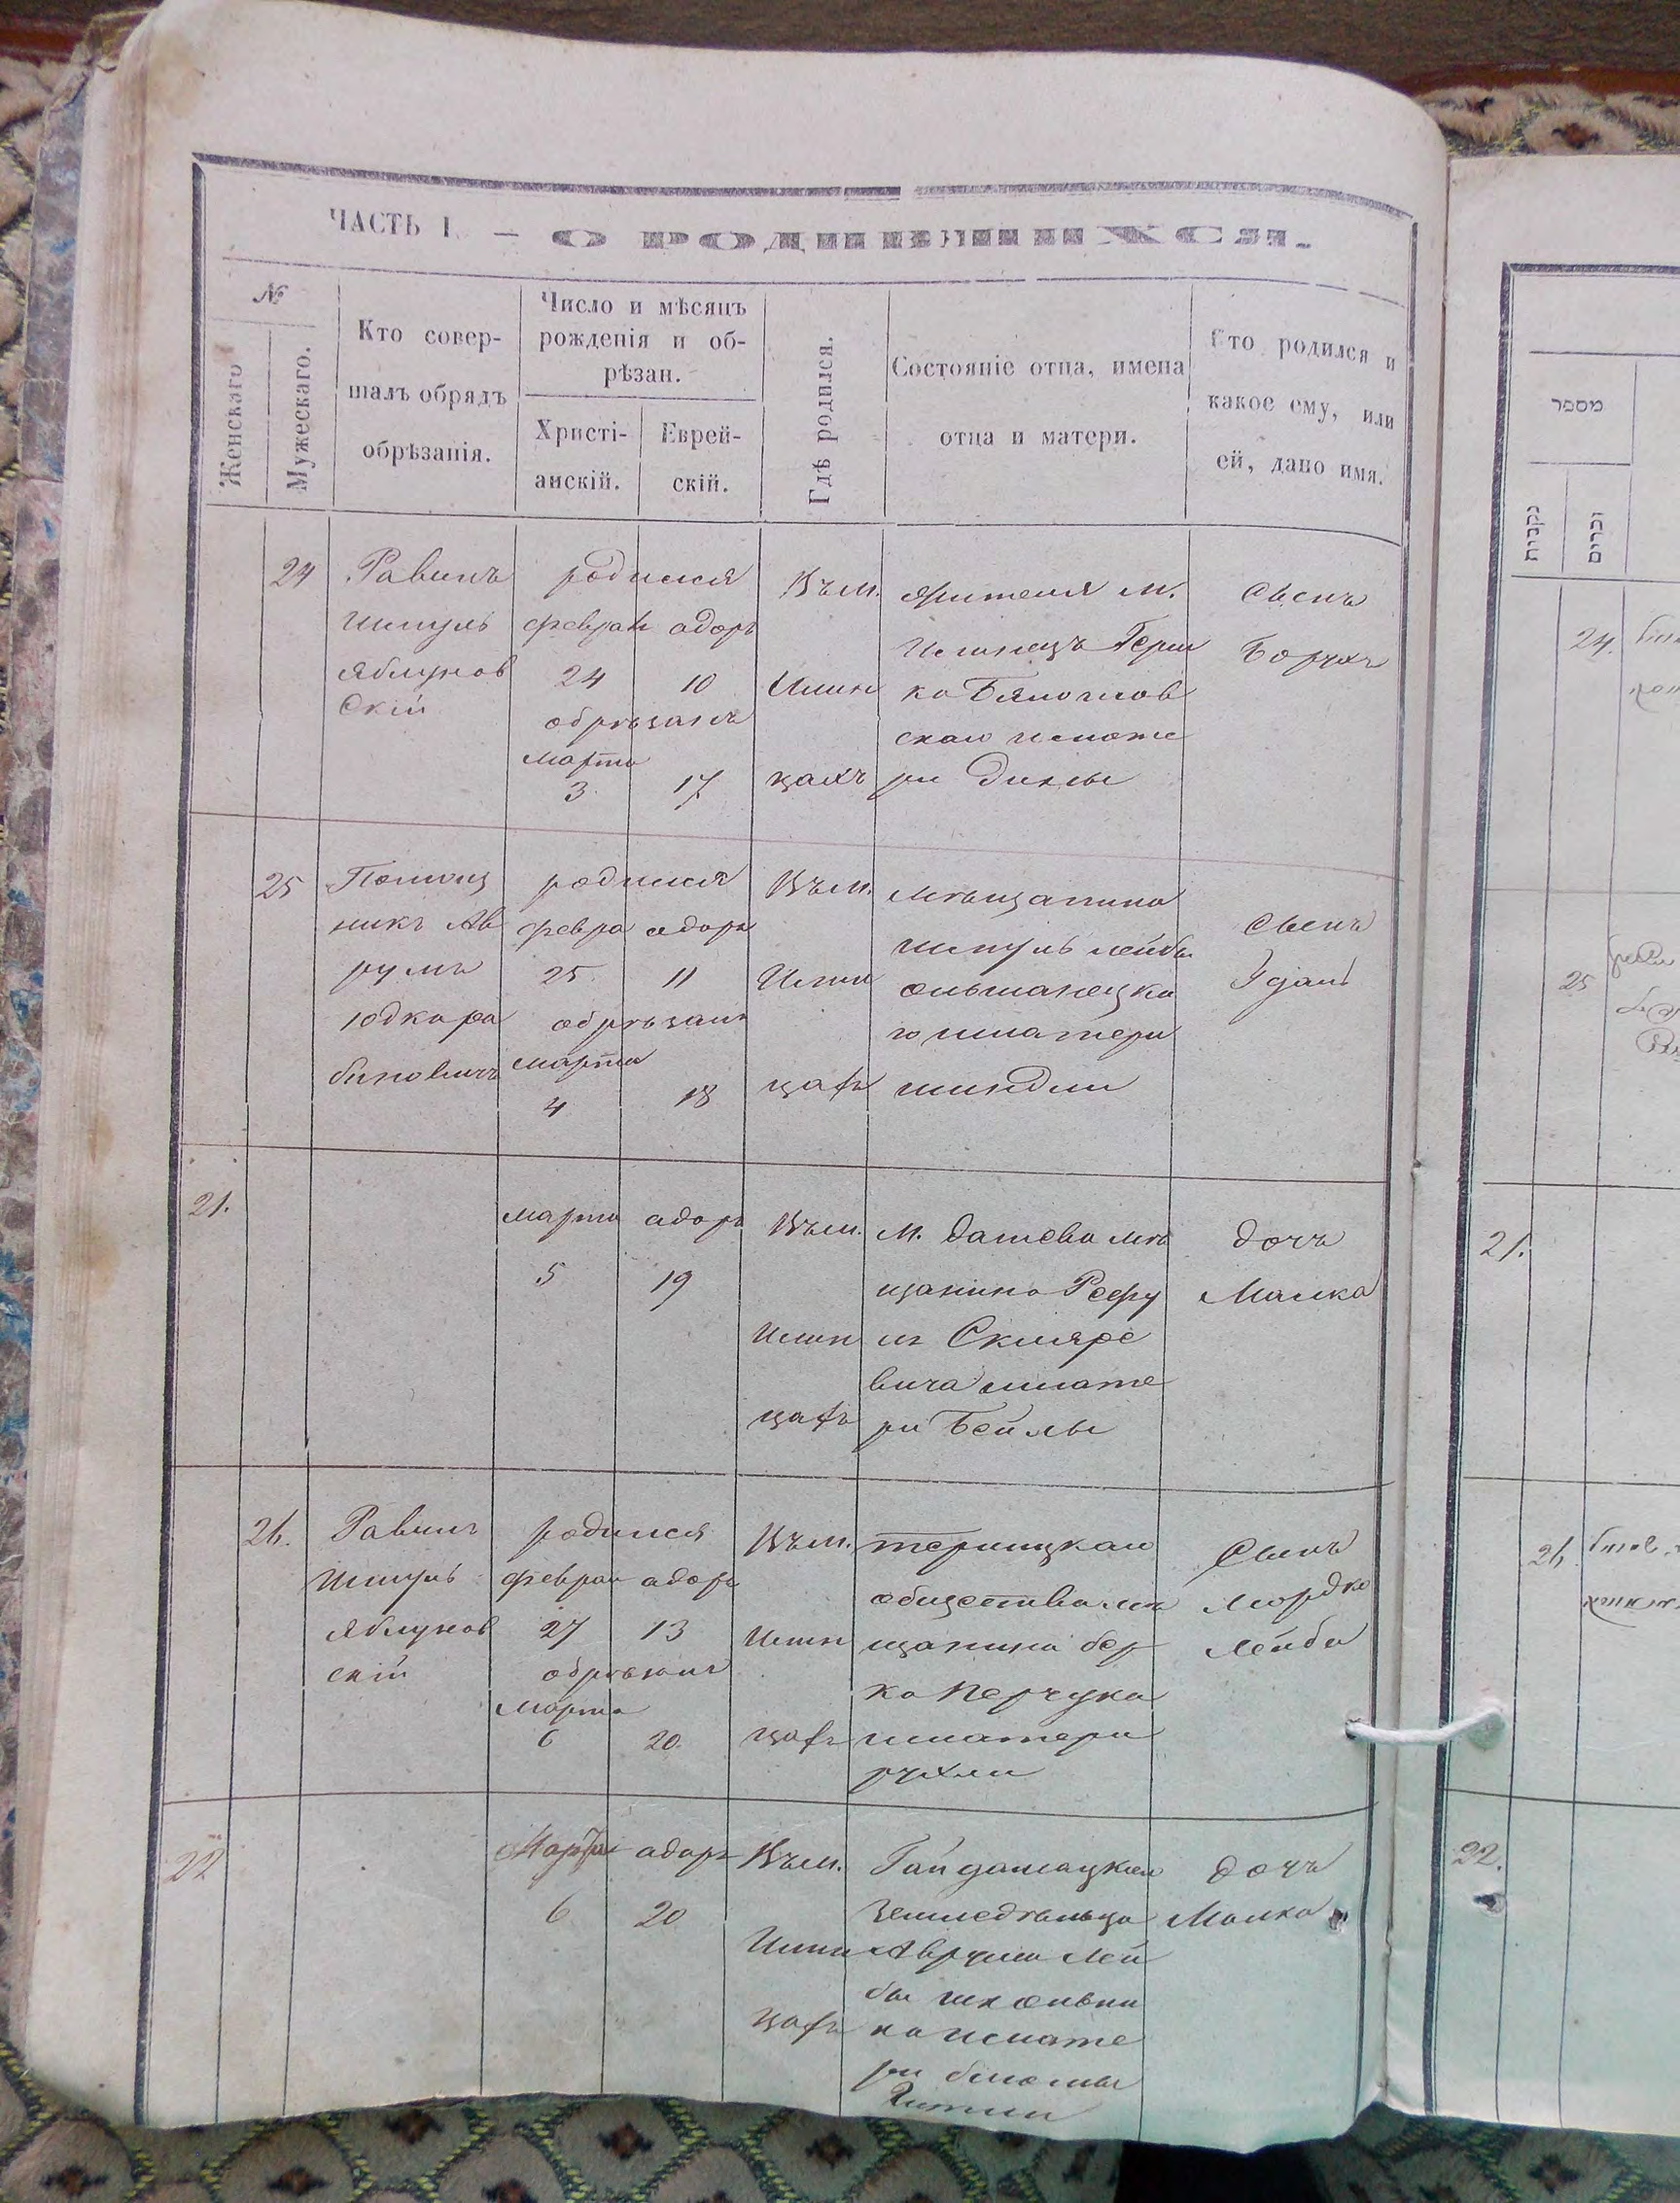 ЧАСТЬ I. — О РОДИВШИХСЯ.
№
Женскаго
Мужескаго.
Кто совер-
шалъ обрядъ
обрѣзанія.
Число и мѣсяцъ
рожденія и об-
рѣзан.
Христі-
анскій.
Еврей-
скій.
Гдѣ родился.
Состояніе отца, имена
отца и матери.
Кто родился и
какое ему, или
ей, дано имя.
24
Равинъ
Шмуль
Яблунов
скій
родился
феврал адаръ
24 10
обрѣзанъ
марта
3 17
Въ м.
Илин
цахъ
жителя м.
Илинецъ Герш
ка
скаго и мате
ри Дины
Сынъ
Борухъ
25
Помощ
никъ Ав
румъ
Юдка Ра
биновичъ
родился
февра адаръ
25 11
обрѣзанъ
марта
4 18
Въ м.
Илин
цахъ
мѣщанина
Шмуль Лейбы
Ольшанецка
го и матери
Шиндли
Сынъ
21.
марта адаръ
5 19
Въ м.
Илин
цахъ
м. Дашева мѣ
щанина Рефу
ла Скляре
вича и мате
ри Бейлы
дочь
Малка
26.
Равинъ
Шмуль
Яблунов
скій
родился
феврал адаръ
27 13
обрѣзанъ
марта
6 20
Въ м.
Илин
цахъ
общества мѣ
щанина Бер
ка Перчука
и матери
Рухли
Сынъ
Мордко
Лейба
22
Марта адаръ
6 20
Въ м.
Илин
цахъ
земледѣльца
Аврума Лей
бы Школьни
ка и мате
ри Блюмы
дочь
Малка
מספר
נקבות
זכרים
24.
25
21.
26
22.